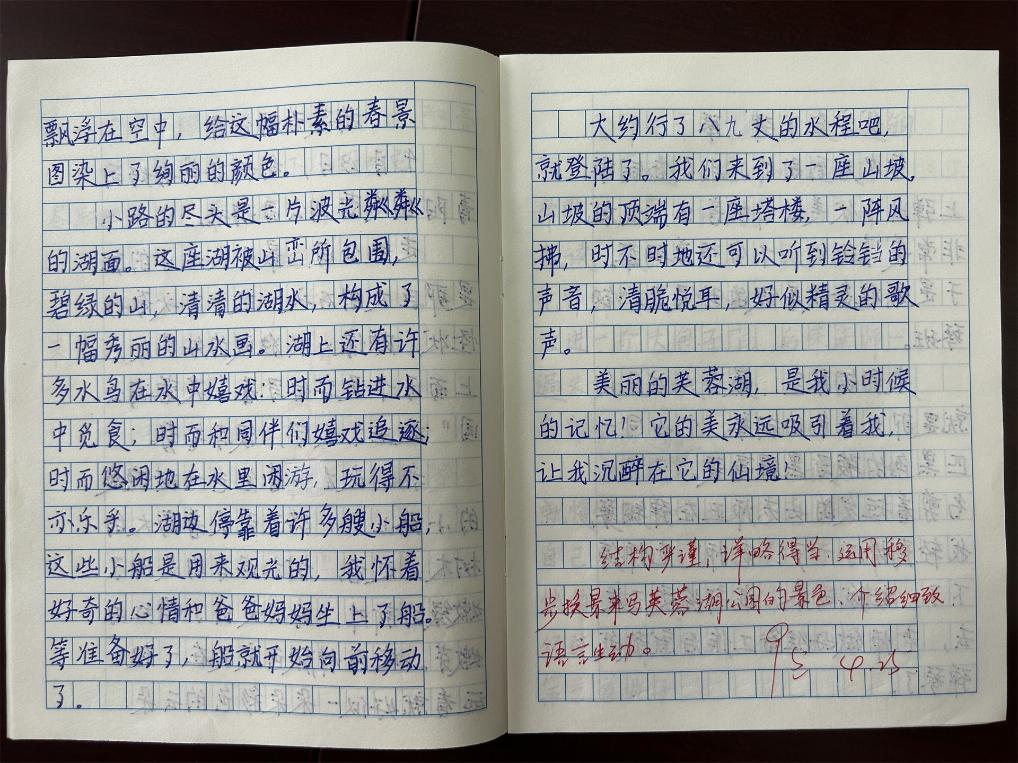 飘浮在空中，给这幅朴素的春景
图染上了绚丽的颜色。
小路的尽头是一片波光粼粼
的湖面。这座湖被山峦所包围，
碧绿的山，清清的湖水，构成了
一幅秀丽的山水画。湖上还有许
多水鸟在水中嬉戏：时而钻进水
中觅食；时而和同伴们嬉戏追逐；
时而悠闲地在水里闲游，玩得不
亦乐乎。湖边停靠着许多艘小船，
这些小船是用来观光的，我怀着
好奇的心情和爸爸妈妈坐上了船。
等准备好了，船就开始向前移动
了。
大约行了八九丈的水程吧，
就登陆了。我们来到了一座山坡。
山坡的顶端有一座塔楼，一阵风
拂，时不时地还可以听到铃铛的
声音，清脆悦耳，好似精灵的歌
声。
美丽的芙蓉湖，是我小时候
的记忆！它的美永远吸引着我，
让我沉醉在它的仙境！
结构严谨，详略得当，运用移
步换景来写芙蓉湖公园的景色，介绍细致
语言生动。
95 4.25